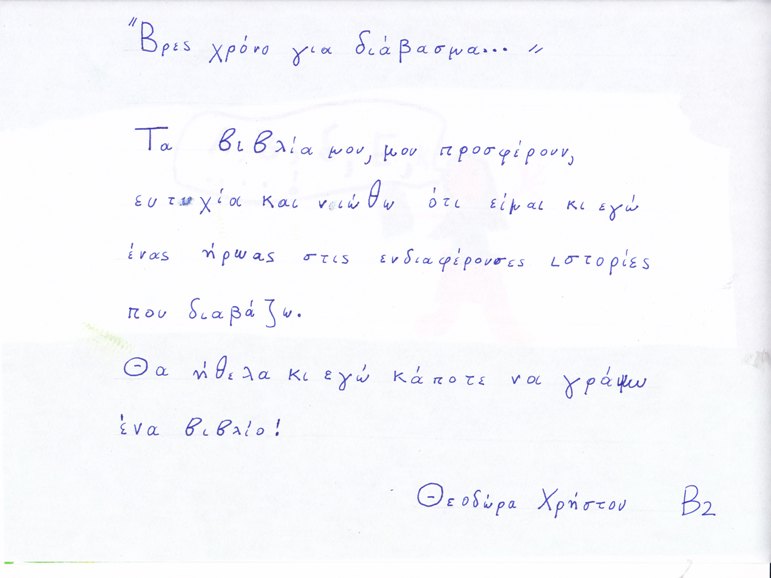 "Βρες χρόνο για διάβασμα... "
Τα βιβλία μου, μου προσφέρουν,
ευτυχία και νιώθω ότι είμαι κι εγώ
ένας ήρωας στις ενδιαφέρουσες ιστορίες
που διαβάζω.
Θα ήθελα κι εγώ κάποτε να γράψω
ένα βιβλίο!
Θεοδώρα Χρήστου Β2